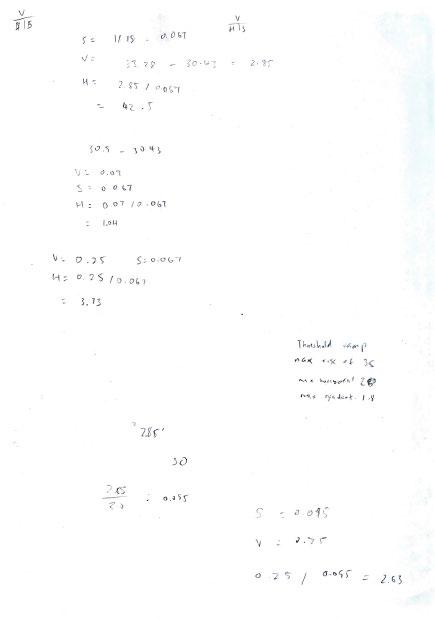 V
H | S
V
H | S
S = 1/15 - 0.067
V = 33.28 - 30.43 = 2.85
H = 2.85 / 0.067
= 42.5
30.5 - 30.43
V = 0.07
S = 0.067
H = 0.07 / 0.067
= 1.04
V = 0.25 S = 0.067
H = 0.25 / 0.067
= 3.73
Threshold ramp
max rise of 35
max horizontal
max gradient 1:8
285'
30
2.85
= 0.095
S = 0.095
V = 0.25
0.25 / 0.095 = 2.63